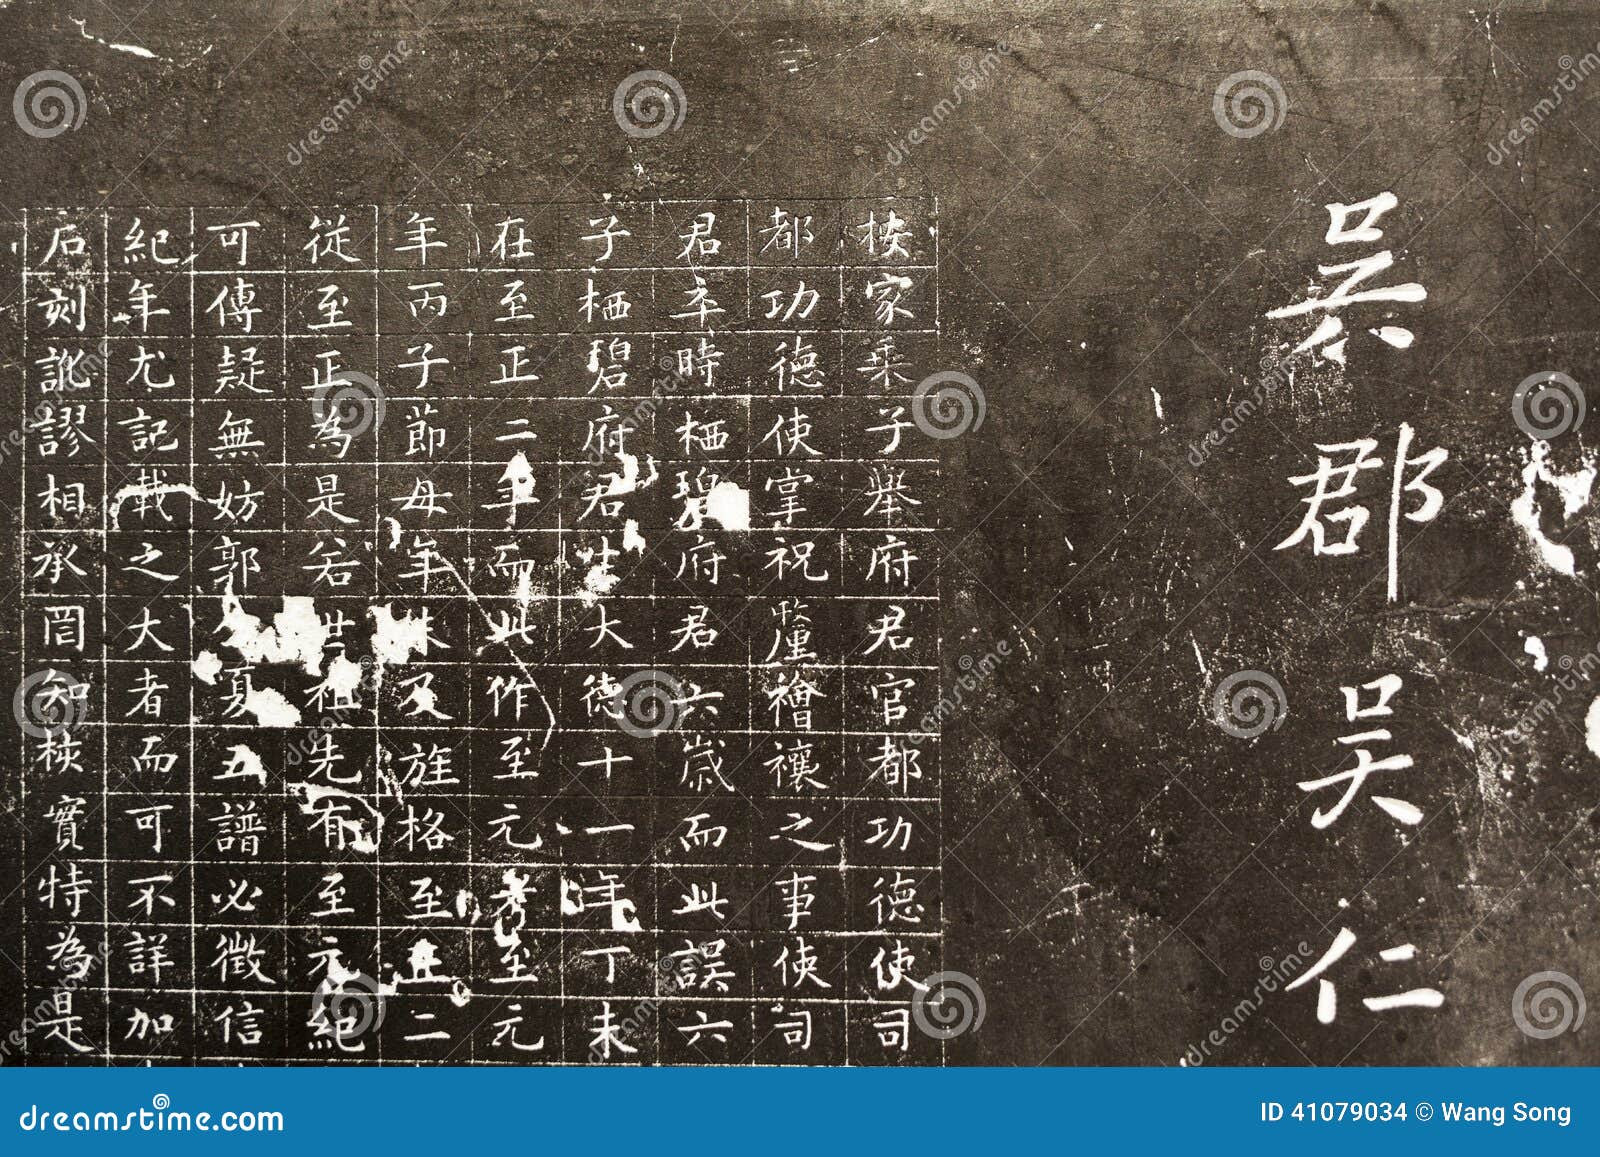 吳郡吳仁
核家乘子舉府君官都功德使司
都功德使掌祝釐禬禳之事使司
君卒時栖碧府君六歲而此誤六
子栖碧府君生大德十一年丁未
在至正二年而此作至元考至元
年丙子節母年 及旌格至正二
從至正為是若世祖先有至元紀
可傳疑無妨郭公夏五譜必徵信
紀年尤記載之大者而可不詳加
石刻訛謬相承罔知核實特為是
dreamstime.com
ID 41079034 © Wang Song